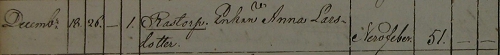 Decembr. 18. 26. — 1. Rastorp. Enkan Anna Lars- Nervfeber. 51. — —
dotter.